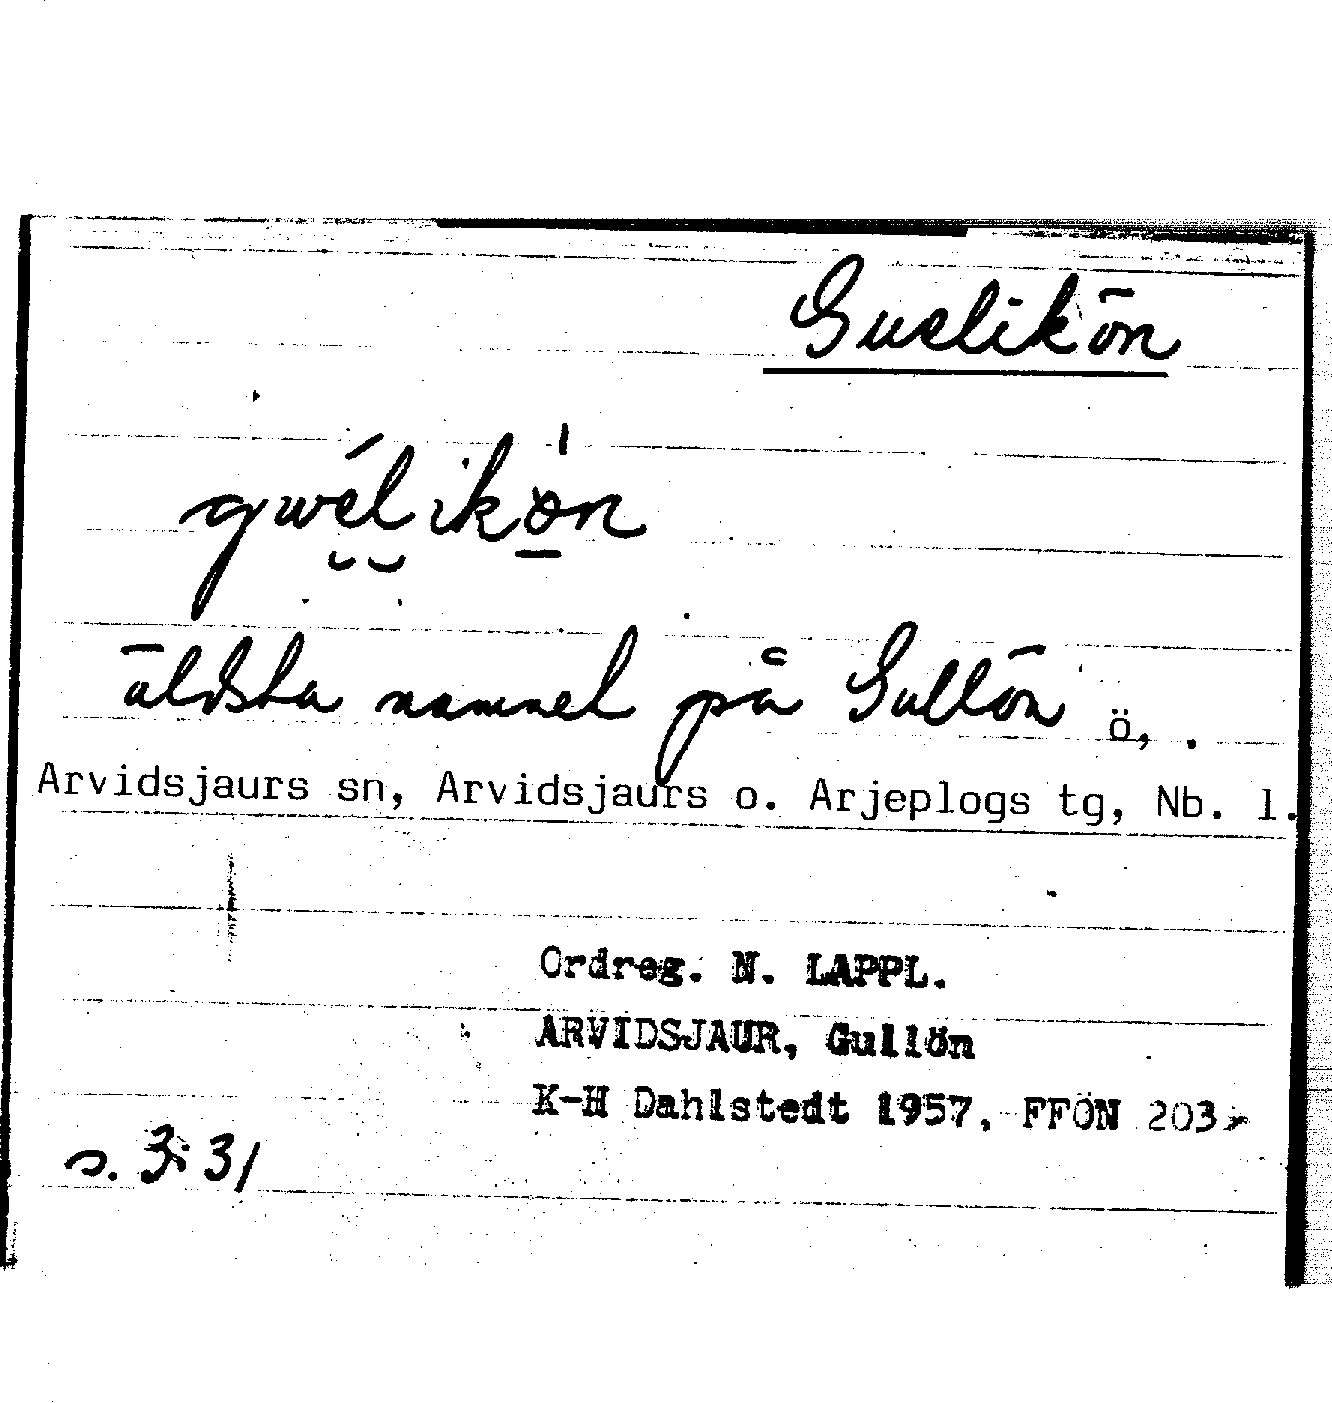 Guelikön
gwélikön
äldsta namnet på Gullön ö, .
Arvidsjaurs sn, Arvidsjaurs o. Arjeplogs tg, Nb. l.
Ordreg. N. LAPPL.
ARVIDSJAUR, Gullön
K-H Dahlstedt 1957. FFÖN 203
s. 3:31